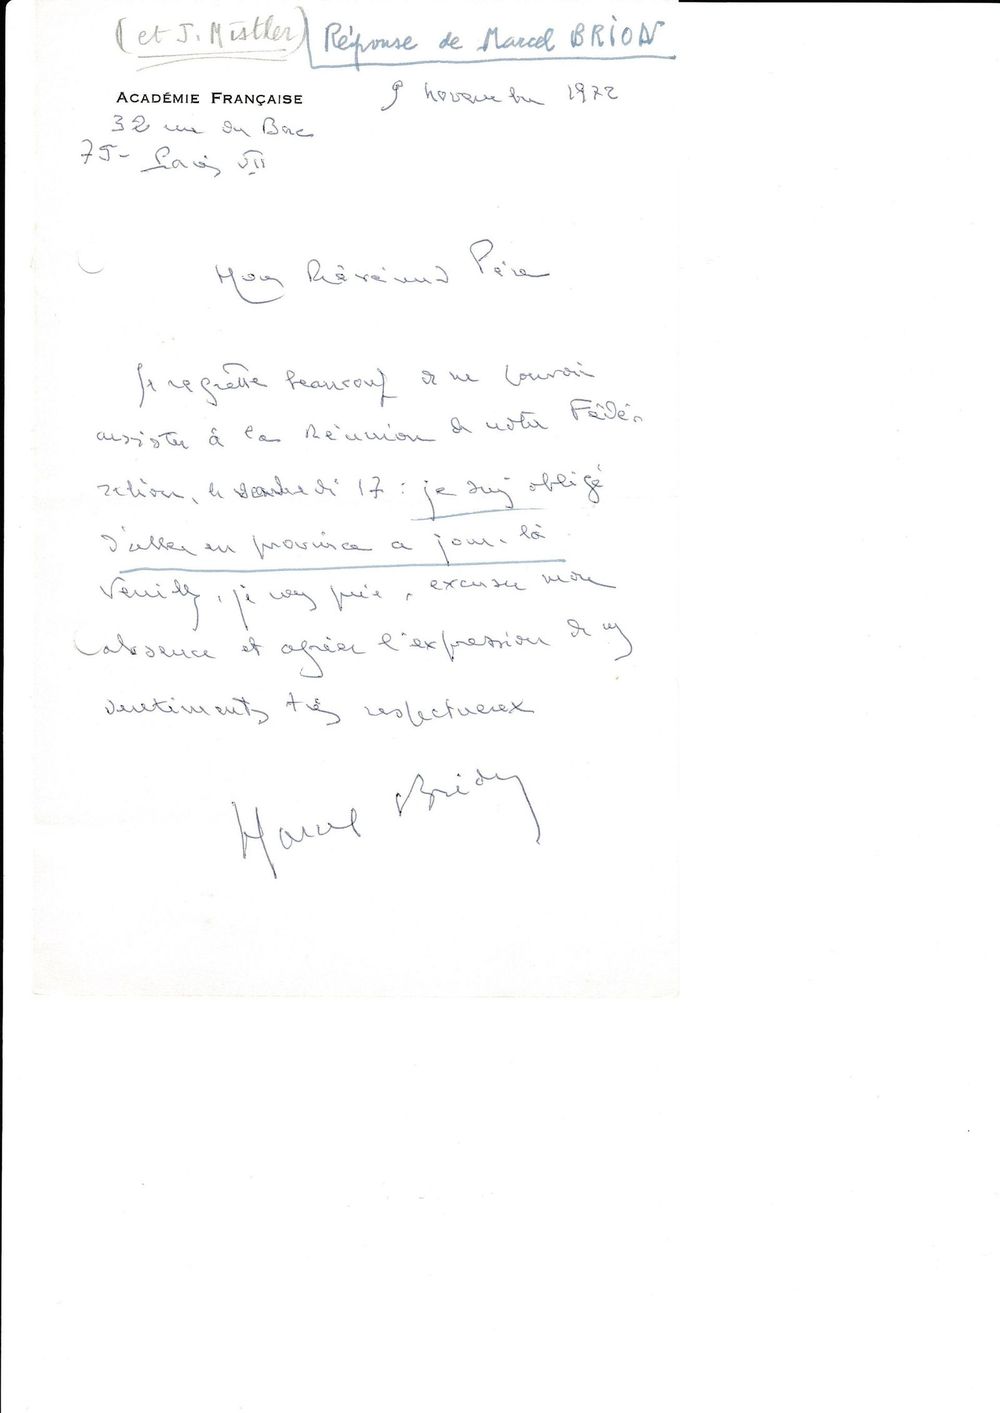 (et J. Mistler) Réponse de Marcel BRION
ACADÉMIE FRANÇAISE
9 novembre 1972
32 rue du Bac
75- Paris VII
Mon Révérend Père
Je regrette beaucoup de ne pouvoir
assister à la Réunion de notre Fédé-
ration, le vendredi 17 : je suis obligé
d'aller en province ce jour-là.
Veuillez, je vous prie, excuser mon
absence et agréer l'expression de mes
sentiments très respectueux
Marcel Brion